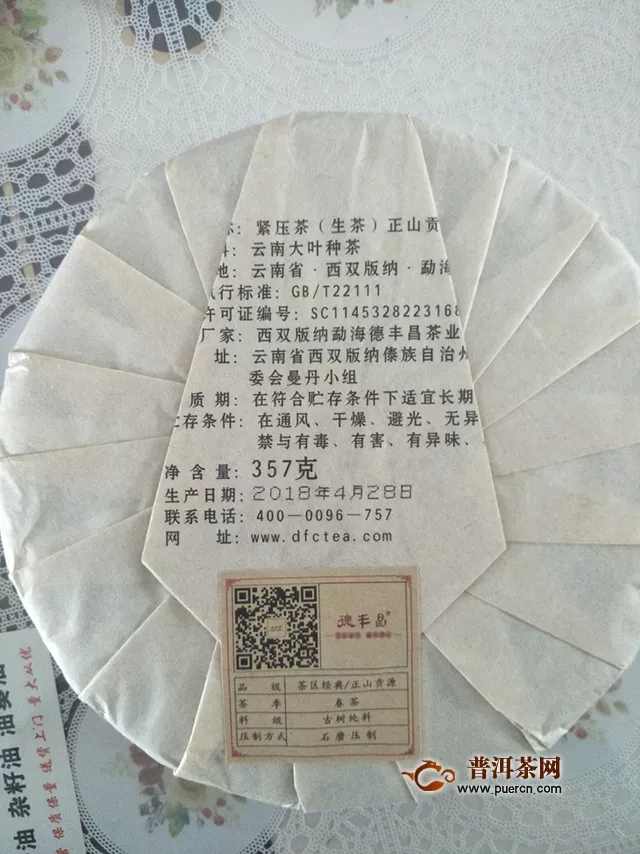 称: 紧压茶（生茶）正山贡
料: 云南大叶种茶
地: 云南省·西双版纳·勐海
执行标准: GB/T22111
许可证编号: SC1145328223168
厂家: 西双版纳勐海德丰昌茶业
址: 云南省西双版纳傣族自治州
委会曼丹小组
质期: 在符合贮存条件下适宜长期
贮存条件: 在通风、干燥、避光、无异
禁与有毒、有害、有异味、
净含量: 357克
生产日期: 2018年4月28日
联系电话: 400—0096—757
网址: www.dfctea.com
德丰昌
品级 茶区经典/正山贡源
茶季 春茶
料级 古树纯料
压制方式 石磨压制
油 杂籽油 油葵油
保质保量 送货上门 量大从优
普洱茶网
www.puercn.com